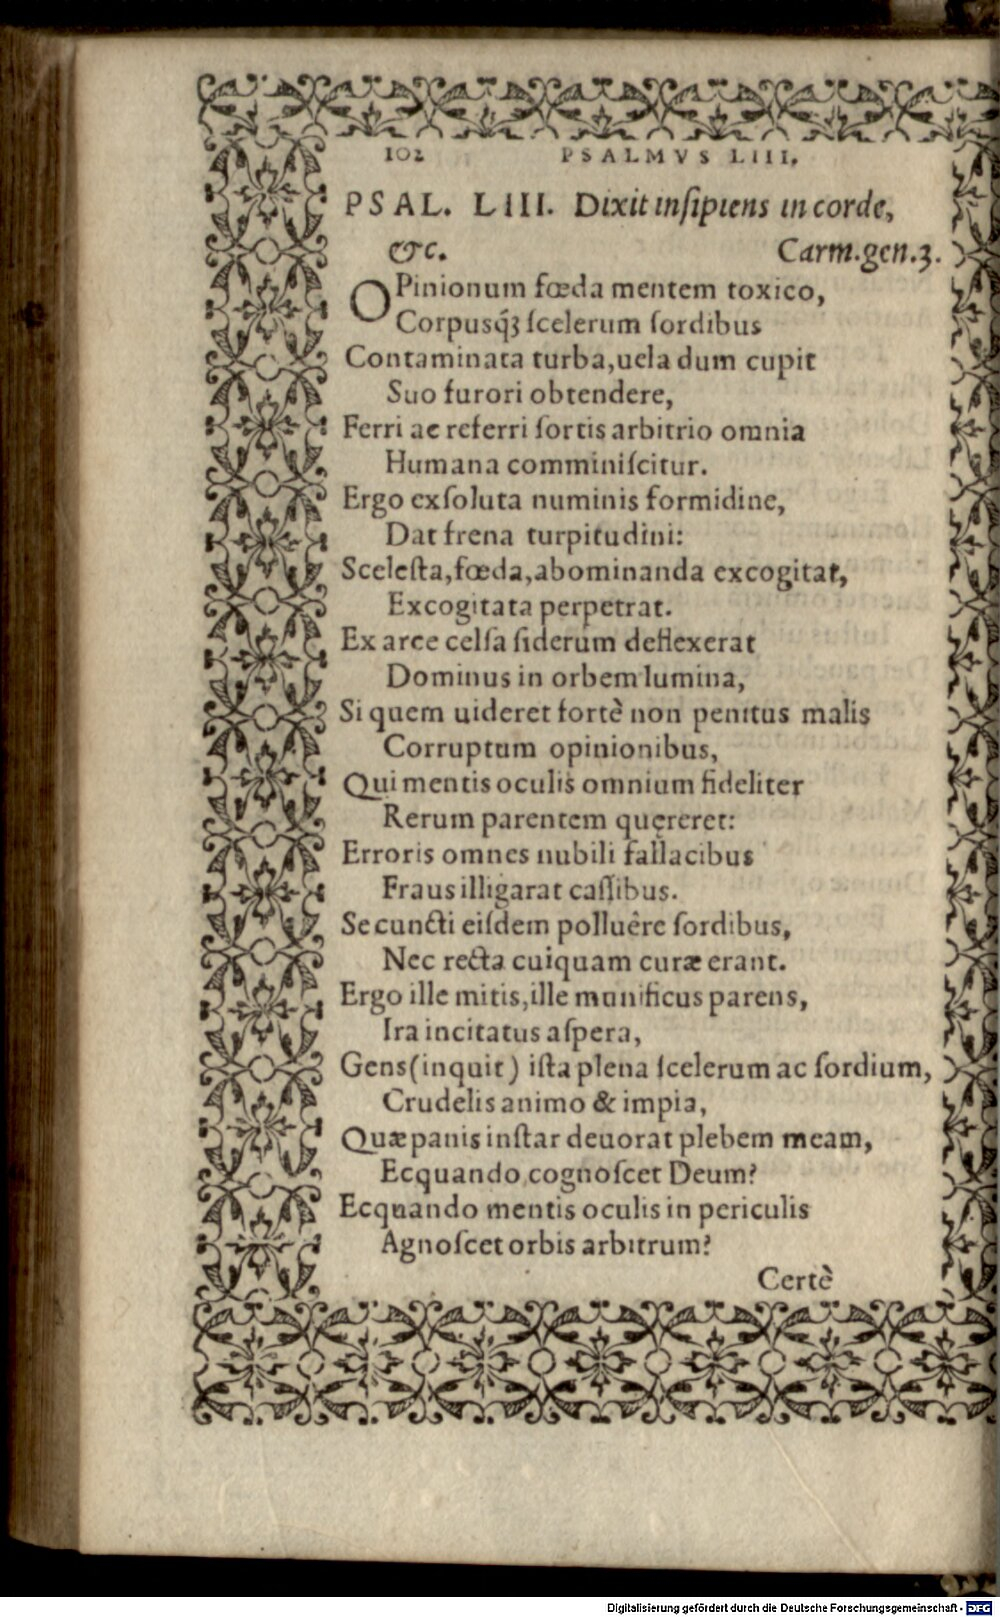 102 PSALMVS LIII.
PSAL. LIII. Dixit inſipiens in corde,
&c. Carm.gen.3.
OPinionum fœda mentem toxico,
Corpusq́ꝫ ſcelerum ſordibus
Contaminata turba,uela dum cupit
Suo furori obtendere,
Ferri ac referri ſortis arbitrio omnia
Humana comminiſcitur.
Ergo exſoluta numinis formidine,
Dat frena turpitudini:
Sceleſta,fœda,abominanda excogitat,
Excogitata perpetrat.
Ex arce celſa ſiderum deflexerat
Dominus in orbem lumina,
Si quem uideret fortè non penitus malis
Corruptum opinionibus,
Qui mentis oculis omnium fideliter
Rerum parentem quęreret:
Erroris omnes nubili fallacibus
Fraus illigarat caſſibus.
Se cuncti eiſdem polluêre ſordibus,
Nec recta cuiquam curæ erant.
Ergo ille mitis,ille munificus parens,
Ira incitatus aſpera,
Gens(inquit) iſta plena ſcelerum ac ſordium,
Crudelis animo & impia,
Quæ panis inſtar deuorat plebem meam,
Ecquando cognoſcet Deum?
Ecquando mentis oculis in periculis
Agnoſcet orbis arbitrum?
Certè
Digitalisierung gefördert durch die Deutsche Forschungsgemeinschaft - DFG